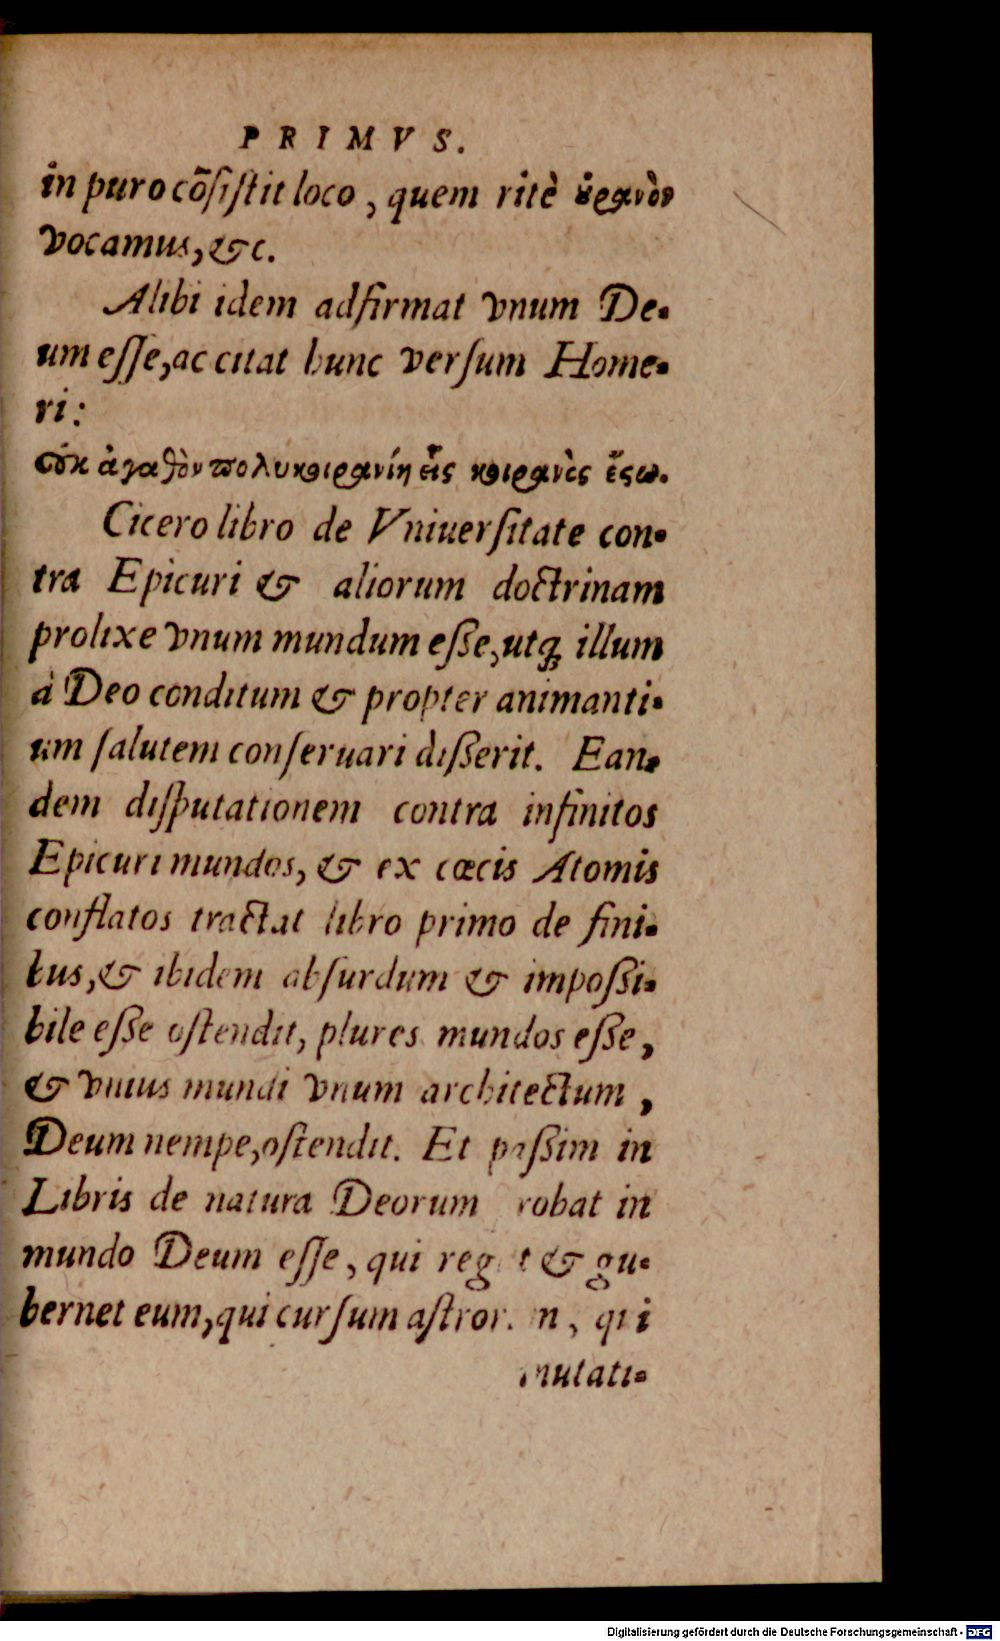 PRIMVS.
in puro cõſiſtit loco, quem ritè ȣ̓ρανὸν
vocamus, &c.
Alibi idem adfirmat vnum De-
um eſſe, ac citat hunc verſum Home-
ri:
οὐκ ἀγαθὸν πολυκοιρανίη εἷς κοιρανὸς ἔςω.
Cicero libro de Vniuerſitate con-
tra Epicuri & aliorum doctrinam
prolixe vnum mundum eſſe, utq; illum
à Deo conditum & propter animanti-
um ſalutem conſeruari diſſerit. Ean-
dem diſputationem contra infinitos
Epicuri mundos, & ex cœcis Atomis
conflatos tractat libro primo de fini-
bus, & ibidem abſurdum & impoſſi-
bile eſſe oſtendit, plures mundos eſſe,
& vnius mundi vnum architectum,
Deum nempe, oſtendit. Et paſſim in
Libris de natura Deorum robat in
mundo Deum eſſe, qui reg t & gu-
bernet eum, qui curſum aſtror. n, qui
mutati-
Digitalisierung gefördert durch die Deutsche Forschungsgemeinschaft - DFG